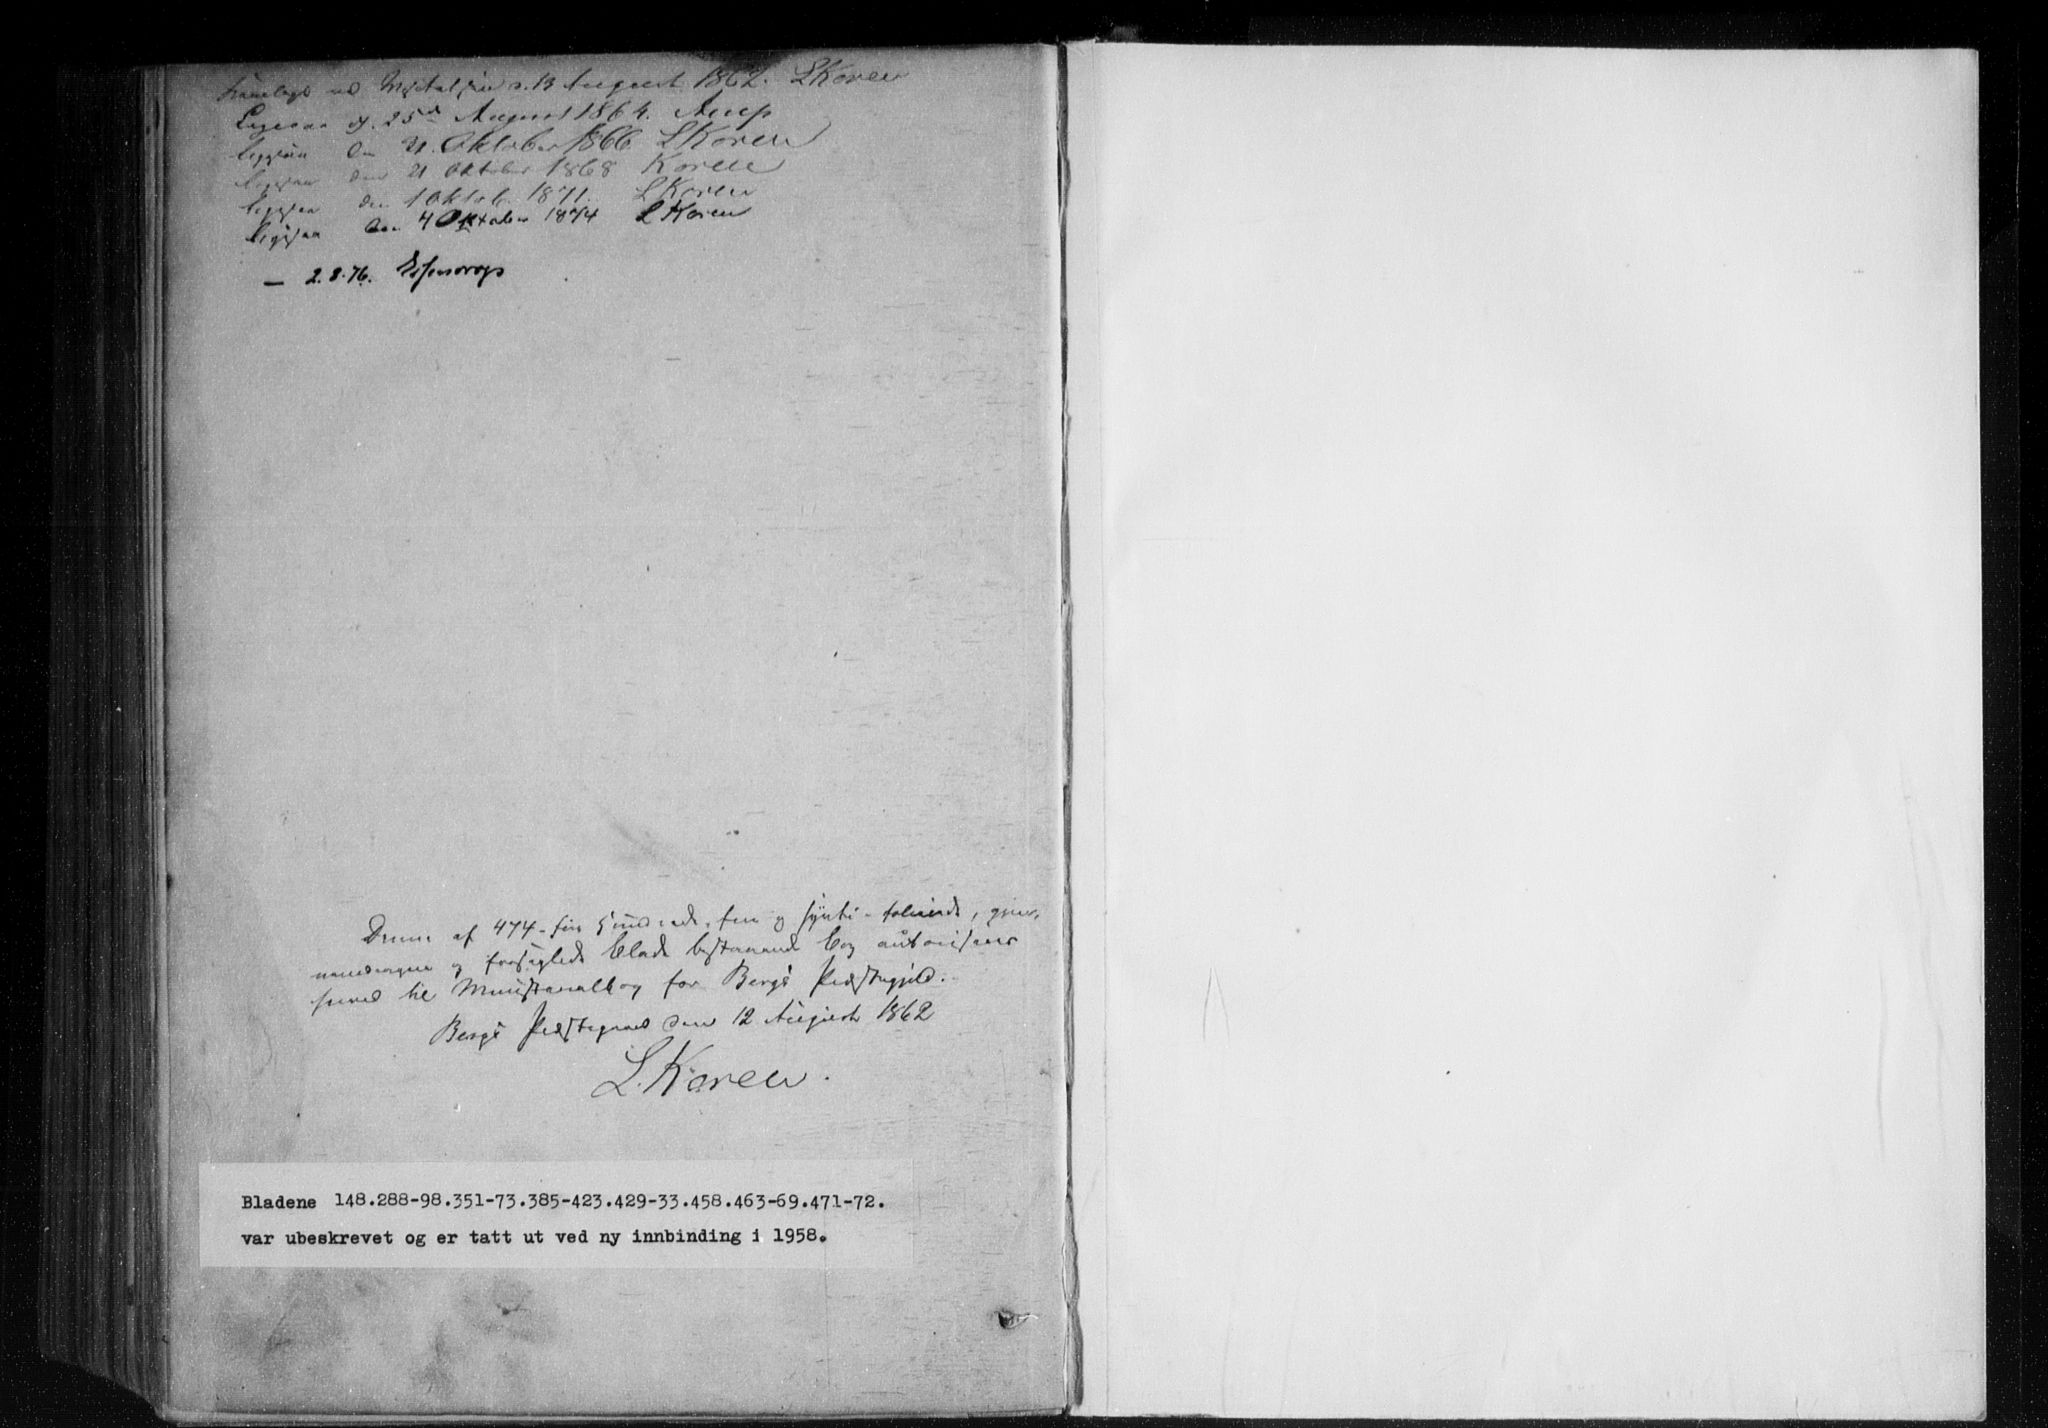 Fremlagt ved Visitatsen d. 13 August 1862. LKoren
Ligesaa d. 25de August 1864. Arup
ligesaa den 21. Oktober 1866 LKoren
ligesaa den 21 Oktober 1868 Koren
ligesaa den 1 Oktob. 1871. LKoren
ligesaa den 4 Oktober 1874 LKoren
— 2.8.76. Essendrop
Denne af 474 – fire Hundrede, fire og sytti – folierede, gjen-
nemdragne og forseglede Blade bestaaende Bog autoriseres
herved til Ministerialbog for Bergs Præstegjeld.
Bergs Præstegaard den 12 August 1862
L. Koren.
Bladene 148.288-98.351-73.385-423.429-33.458.463-69.471-72.
var ubeskrevet og er tatt ut ved ny innbinding i 1958.